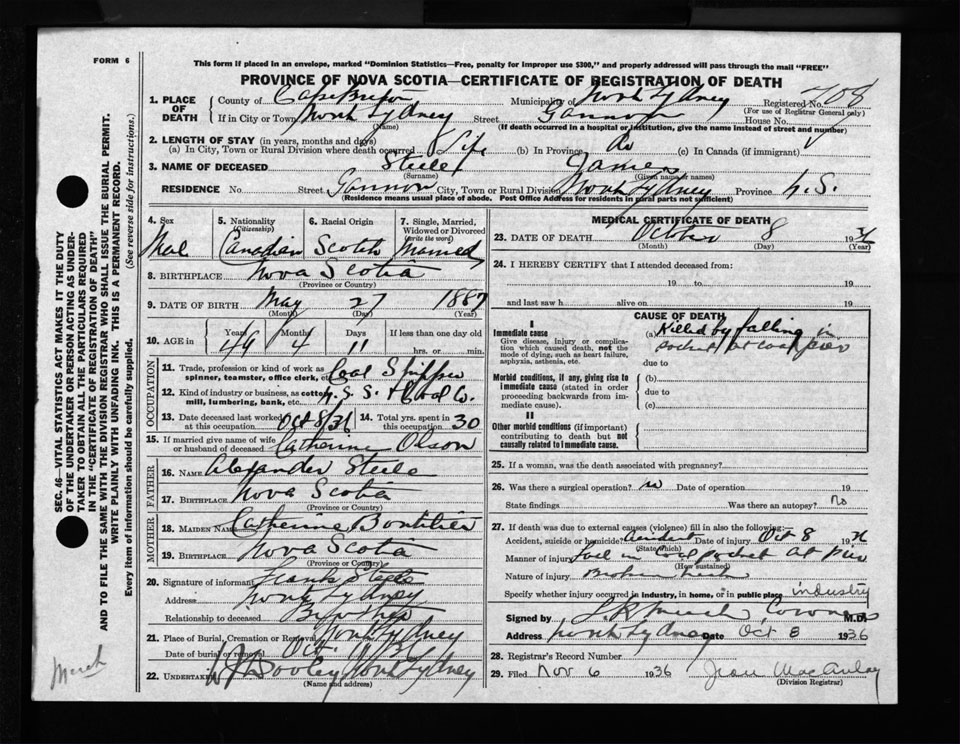 FORM 6
This form if placed in an envelope, marked "Dominion Statistics—Free, penalty for improper use $300," and properly addressed will pass through the mail "FREE"
PROVINCE OF NOVA SCOTIA—CERTIFICATE OF REGISTRATION OF DEATH
SEC. 46—VITAL STATISTICS ACT MAKES IT THE DUTY
OF THE UNDERTAKER OR PERSON ACTING AS UNDER-
TAKER TO OBTAIN ALL THE PARTICULARS REQUIRED
IN THE "CERTIFICATE OF REGISTRATION OF DEATH"
AND TO FILE THE SAME WITH THE DIVISION REGISTRAR WHO SHALL ISSUE THE BURIAL PERMIT.
WRITE PLAINLY WITH UNFADING INK. THIS IS A PERMANENT RECORD.
Every item of information should be carefully supplied. (See reverse side for instructions.)
1. PLACE OF DEATH
County of Cape Breton Municipality of North Sydney Registered No. 708
(For use of Registrar General only)
If in City or Town North Sydney Street Gannon House No.
(Name) (If death occurred in a hospital or institution, give the name instead of street and number)
2. LENGTH OF STAY (in years, months and days)
(a) In City, Town or Rural Division where death occurred Life (b) In Province do (c) In Canada (if immigrant)
3. NAME OF DECEASED Steele James
(Surname) (Given name or names)
RESIDENCE No. Street Gannon City, Town or Rural Division North Sydney Province N.S.
(Residence means usual place of abode. Post Office Address for residents in rural parts not sufficient)
4. Sex 5. Nationality (Citizenship) 6. Racial Origin 7. Single, Married, Widowed or Divorced (Write the word)
Male Canadian Scotch Married
8. BIRTHPLACE Nova Scotia
(Province or Country)
9. DATE OF BIRTH May 27 1887
(Month) (Day) (Year)
10. AGE in Years Months Days If less than one day old
49 4 11 hrs. or min.
OCCUPATION
11. Trade, profession or kind of work as spinner, teamster, office clerk, etc. Coal Shipper
12. Kind of industry or business, as cotton mill, lumbering, bank, etc. N.S.S. & Coal Co.
13. Date deceased last worked at this occupation Oct 8/36 14. Total yrs. spent in this occupation 30
15. If married give name of wife or husband of deceased Catherine Olson
FATHER
16. NAME Alexander Steele
17. BIRTHPLACE Nova Scotia
(Province or Country)
MOTHER
18. MAIDEN NAME Catherine Boutilier
19. BIRTHPLACE Nova Scotia
(Province or Country)
20. Signature of informant Frank Steele
Address North Sydney
Relationship to deceased Brother
21. Place of Burial, Cremation or Removal North Sydney
Date of burial or removal Oct. 36
22. UNDERTAKER Dooley North Sydney
(Name and address)
MEDICAL CERTIFICATE OF DEATH
23. DATE OF DEATH October 8 1936
(Month) (Day) (Year)
24. I HEREBY CERTIFY that I attended deceased from:
19 to 19
and last saw h alive on 19
CAUSE OF DEATH
I
Immediate cause
Give disease, injury or complication which caused death, not the mode of dying, such as heart failure, asphyxia, asthenia, etc.
(a) Killed by falling in pocket at coal pier
due to
Morbid conditions, if any, giving rise to immediate cause (stated in order proceeding backwards from immediate cause).
(b)
due to
(c)
II
Other morbid conditions (if important) contributing to death but not causally related to immediate cause.
25. If a woman, was the death associated with pregnancy?
26. Was there a surgical operation? no Date of operation 19
State findings Was there an autopsy? No
27. If death was due to external causes (violence) fill in also the following:—
Accident, suicide or homicide? Accident Date of injury Oct 8 1936
(State which)
Manner of injury Fell in coal pocket at Pier
(How sustained)
Nature of injury Broken neck
Specify whether injury occurred in industry, in home, or in public place industry
Signed by Coroner M.D.
Address North Sydney Date Oct 8 1936
28. Registrar's Record Number
29. Filed Nov 6 1936 Jean MacAulay
(Division Registrar)